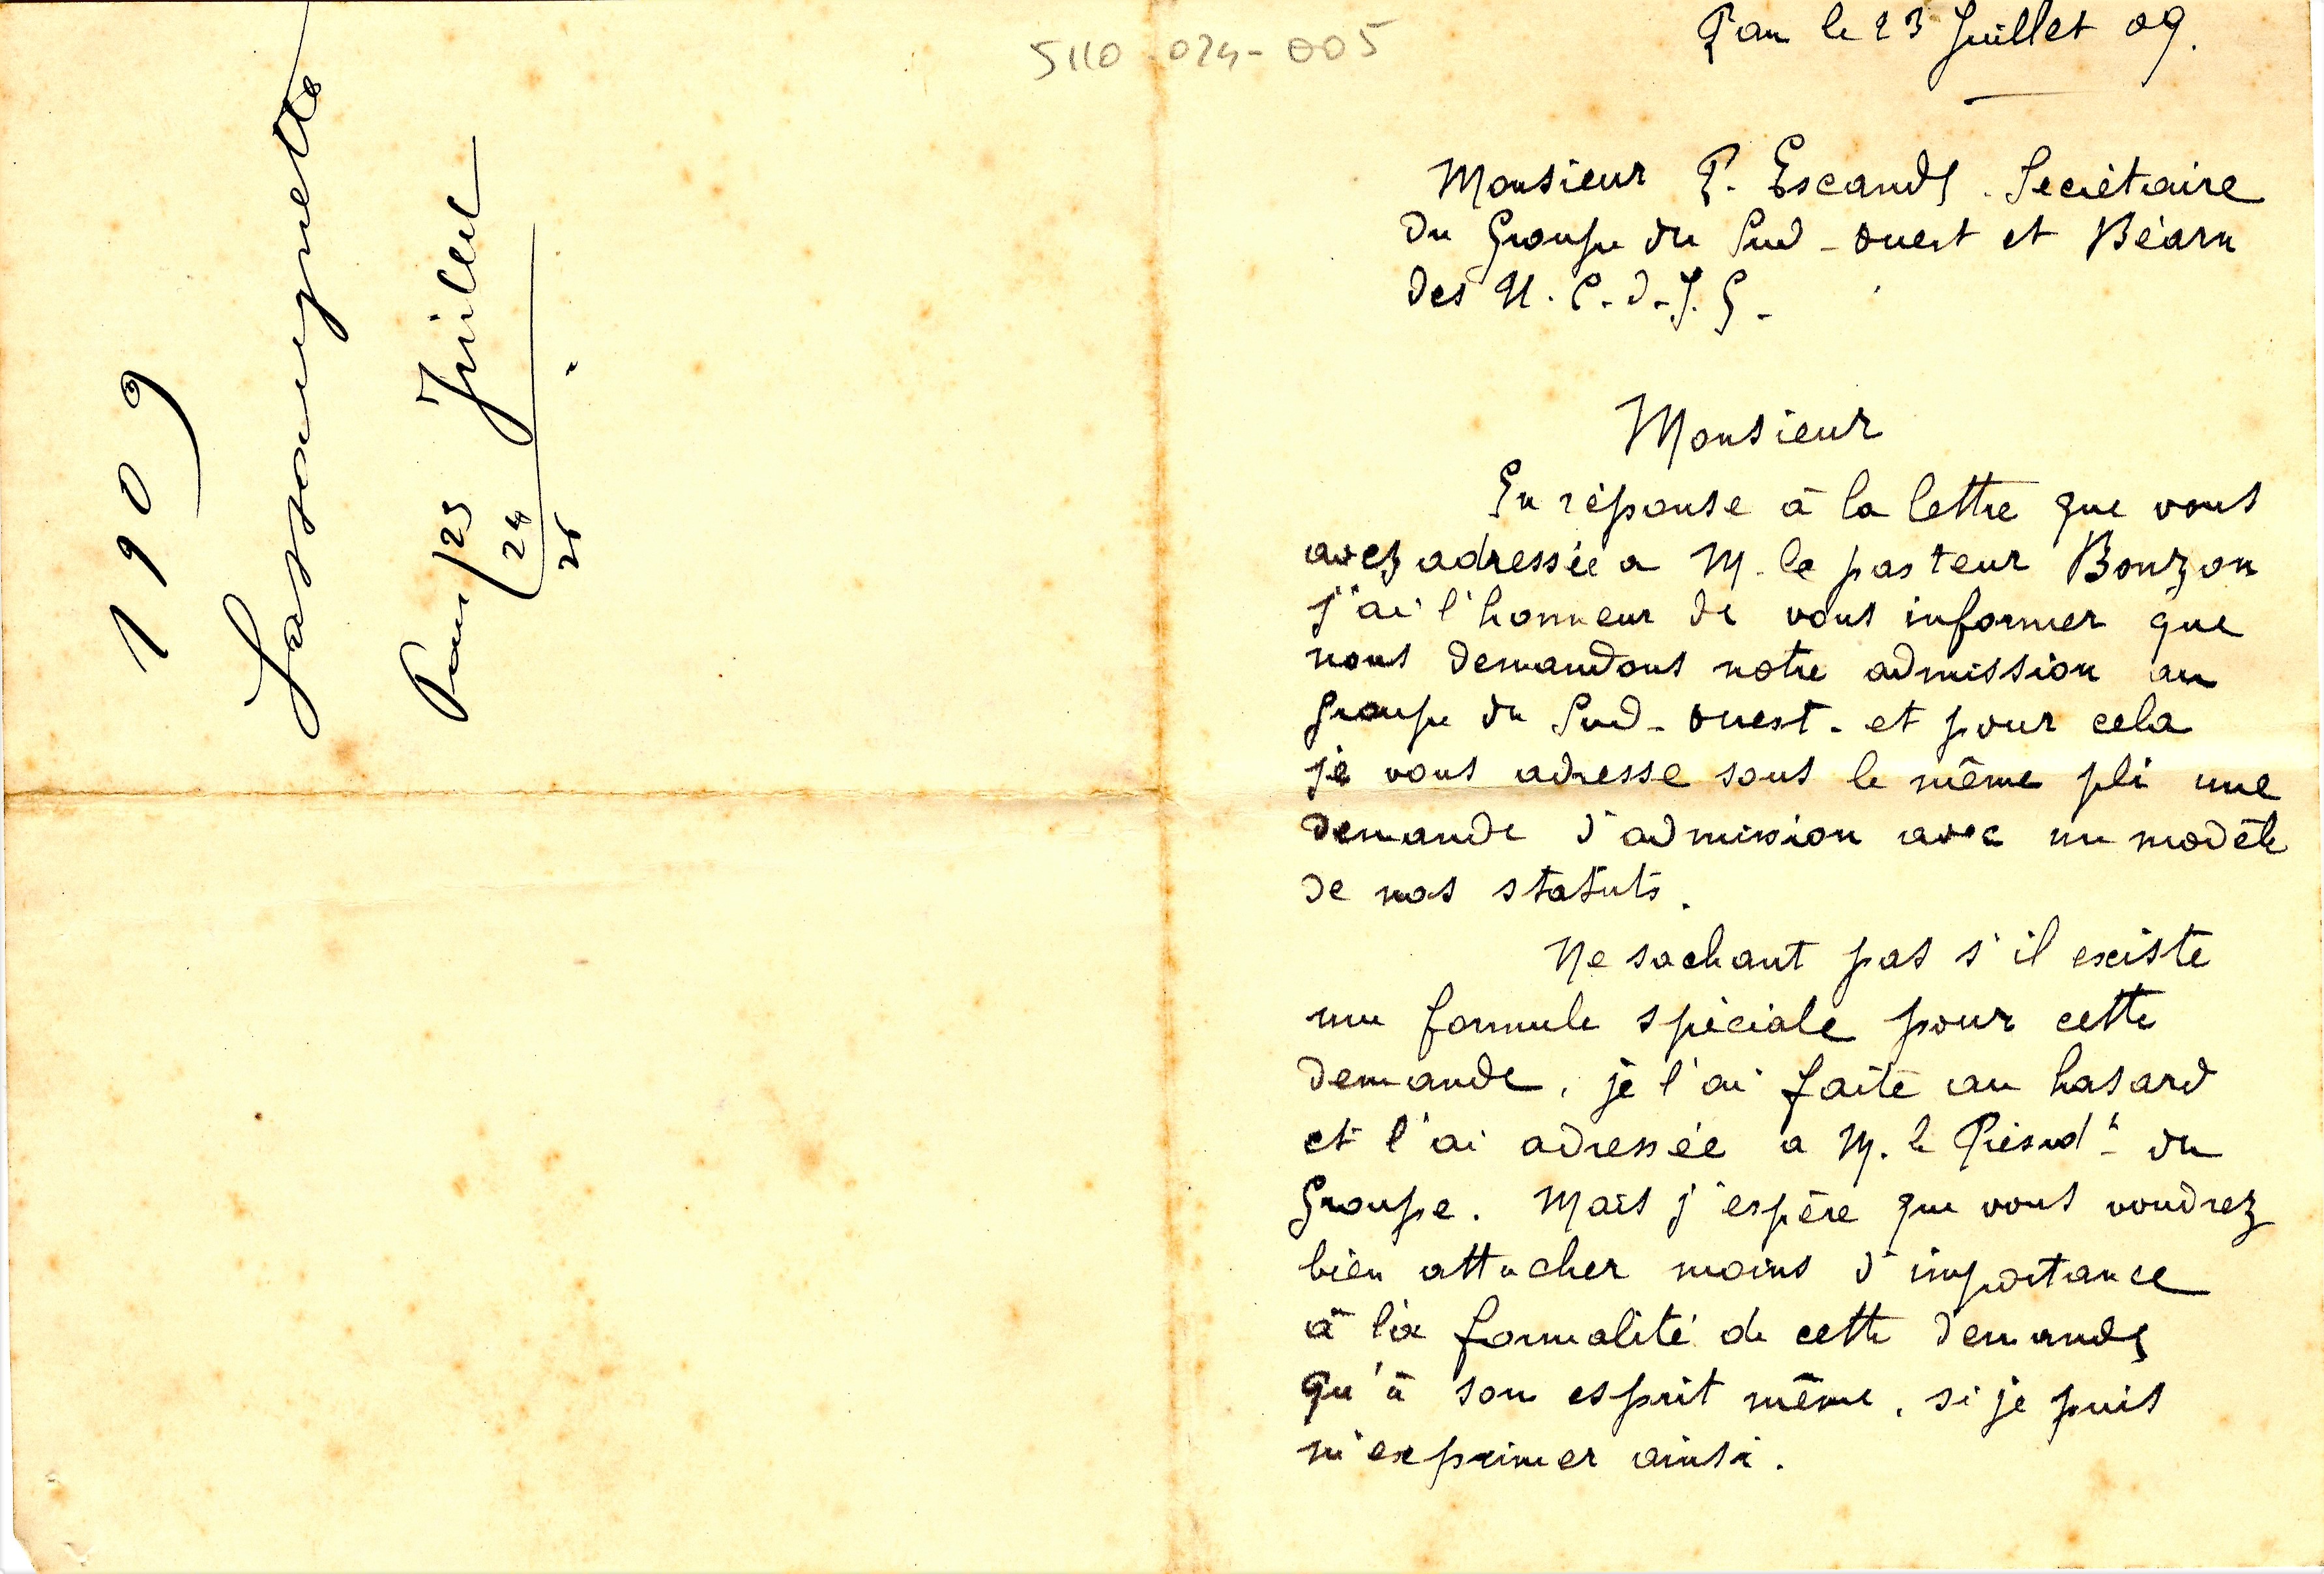 1909
Lassauznette
Pau 23 Juillet
24
26
5110-024-005
Pau le 23 Juillet 09.
Monsieur P. Escande. Secrétaire
du Groupe du Sud-Ouest et Béarn
des U. C. d. J. G.
Monsieur
En réponse à la lettre que vous
avez adressée a M. le pasteur Bonzon
j'ai l'honneur de vous informer que
nous demandons notre admission au
groupe du Sud-Ouest. et pour cela
je vous adresse sous le même pli une
demande d'admission avec un modèle
de nos statuts.
Ne sachant pas s'il existe
une formule spéciale pour cette
demande, je l'ai faite au hasard
et l'ai adressée a M. le Présidt du
Groupe. Mais j'espère que vous voudrez
bien attacher moins d'importance
à la formalité de cette demande
qu'à son esprit même, si je puis
m'exprimer ainsi.